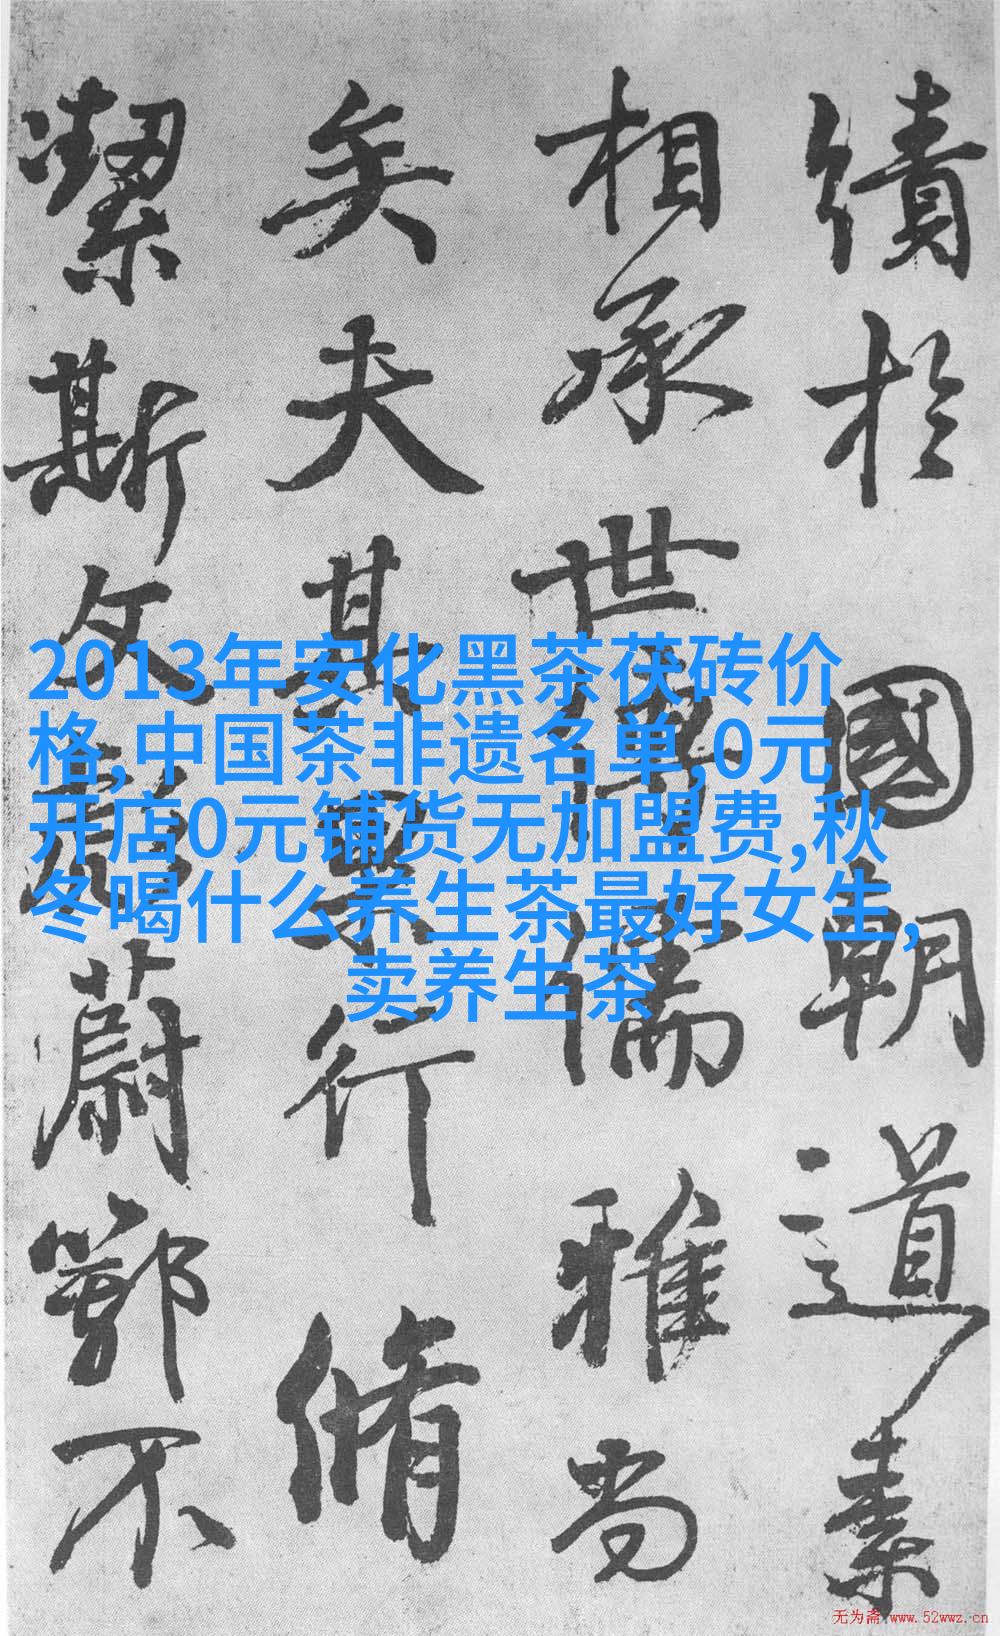 績於國朝道素
相承世傳儒雅尚
矣夫其果行脩
潔斯文彪蔚鄂不
2013年安化黑茶茯砖价
格,中国茶非遗名单,0元
开店0元铺货无加盟费,秋
冬喝什么养生茶最好女生,
卖养生茶
无为斋 www.52wwz.cn